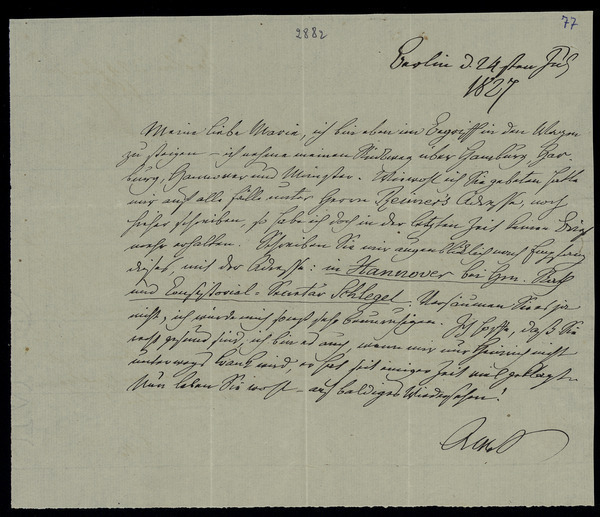 2882
77
Berlin d. 24sten Jul
1827
Meine liebe Marie, ich bin eben im Begriff in den Wagen
zu steigen – ich nehme meinen Rückweg über Hamburg, Har-
burg, Hannover und Münster. Wiewohl ich Sie gebeten hatte
mir auf alle Fälle unter Herrn Reimer's Adresse, noch
hieher schreiben, so habe ich doch in der letzten Zeit keinen Brief
mehr erhalten. Schreiben Sie mir augenblicklich nach Empfang
dieses, mit der Adresse: in Hannover bei Hrn.
und Consistorial-Secretär Schlegel. Versäumen Sie es ja
nicht, ich würde mich sonst sehr beunruhigen. Ich hoffe, daß Sie
recht gesund sind, ich bin es auch, wenn mir nur Heinrich nicht
unterwegs krank wird, er hat seit einiger Zeit viel geklagt.
Nun leben Sie wohl – auf baldiges Wiedersehen!